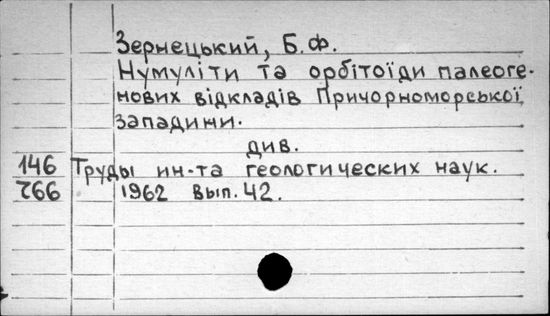 Зернецький, Б.Ф.
Нумуліти та орбітоїди палеоге-
нових відкладів Причорноморської
западини.
див.
146 Труды ин-та геологических наук.
766 1962 вып. 42.